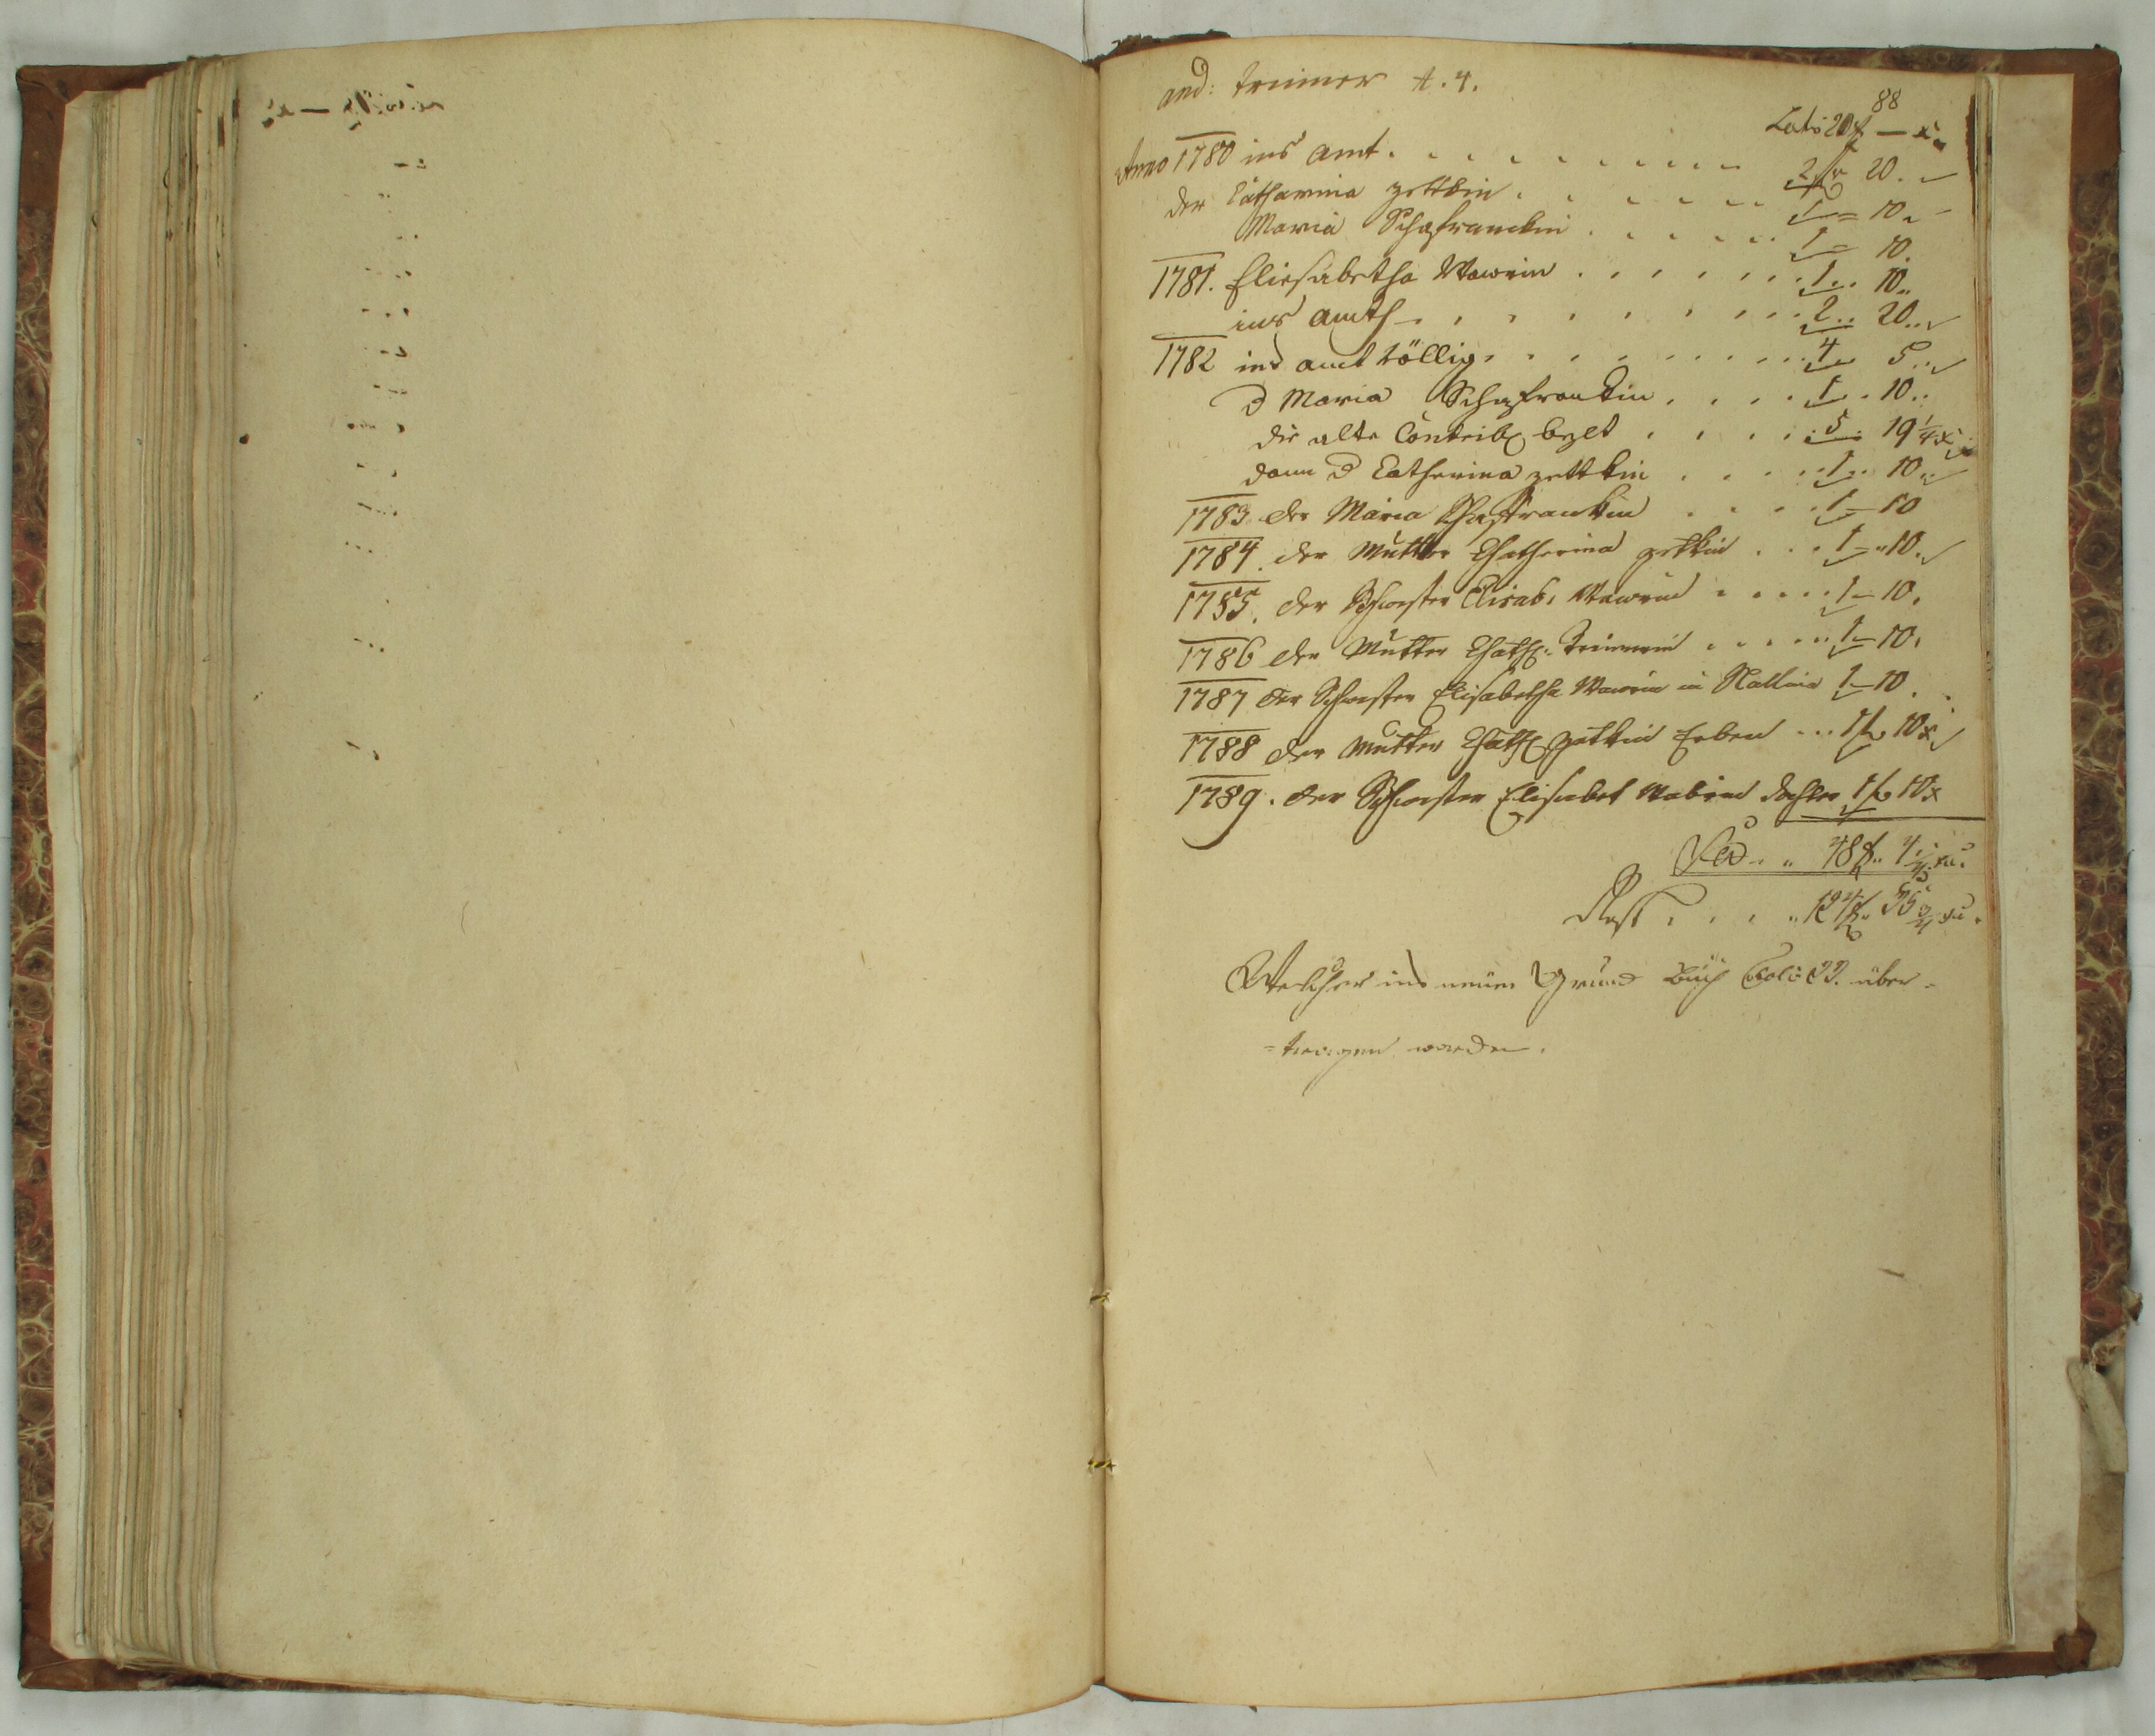 And: Trimer A. 4.
88
Latus 20 f — x
Anno 1780 ins Amt . . . . . . . . . 2 f 20 .
der Catharina zettkin . . . . . . 1 = 10 .
Maria Schafranckin . . . . . 1 = 10 .
1781. Eliesabetha Wawrin . . . . . . 1 .. 10 ..
ins Amth . . . . . . . . 2 .. 20 ..
1782 ins Amt völlig . . . . . . . . 4 .. 5 ..
d Maria Schafrankin . . . . 1 .. 10 ..
die alte Contrib bezlt . . . . . 5 .. 19 1/4 x
dann d Catherina zettkin . . . . . 1 .. 10 ..
1783 der Maria Schafrankin . . . . 1 — 10
1784. der Mutter Chatherina zettkin . . . 1 — 10 .
1785. der Schwester Elisab. Wawrin . . . . . 1 — 10 .
1786 der Mutter Chath: Trimerin . . . . . 1 — 10 .
1787 der Schwester Elisabetha Wawrin in 1 — 10 .
1788 der Mutter Chath zettkin Erben . . . 1 f 10 x
1789. der Schwester Elisabet Wabrin Dochter 1 f 10 x
48 f .. 4 1/4 xr.
Rest . . . . 55 3/4 xr.
Welcher ins neüe Grund Buch Folio über-
=tragen worden.